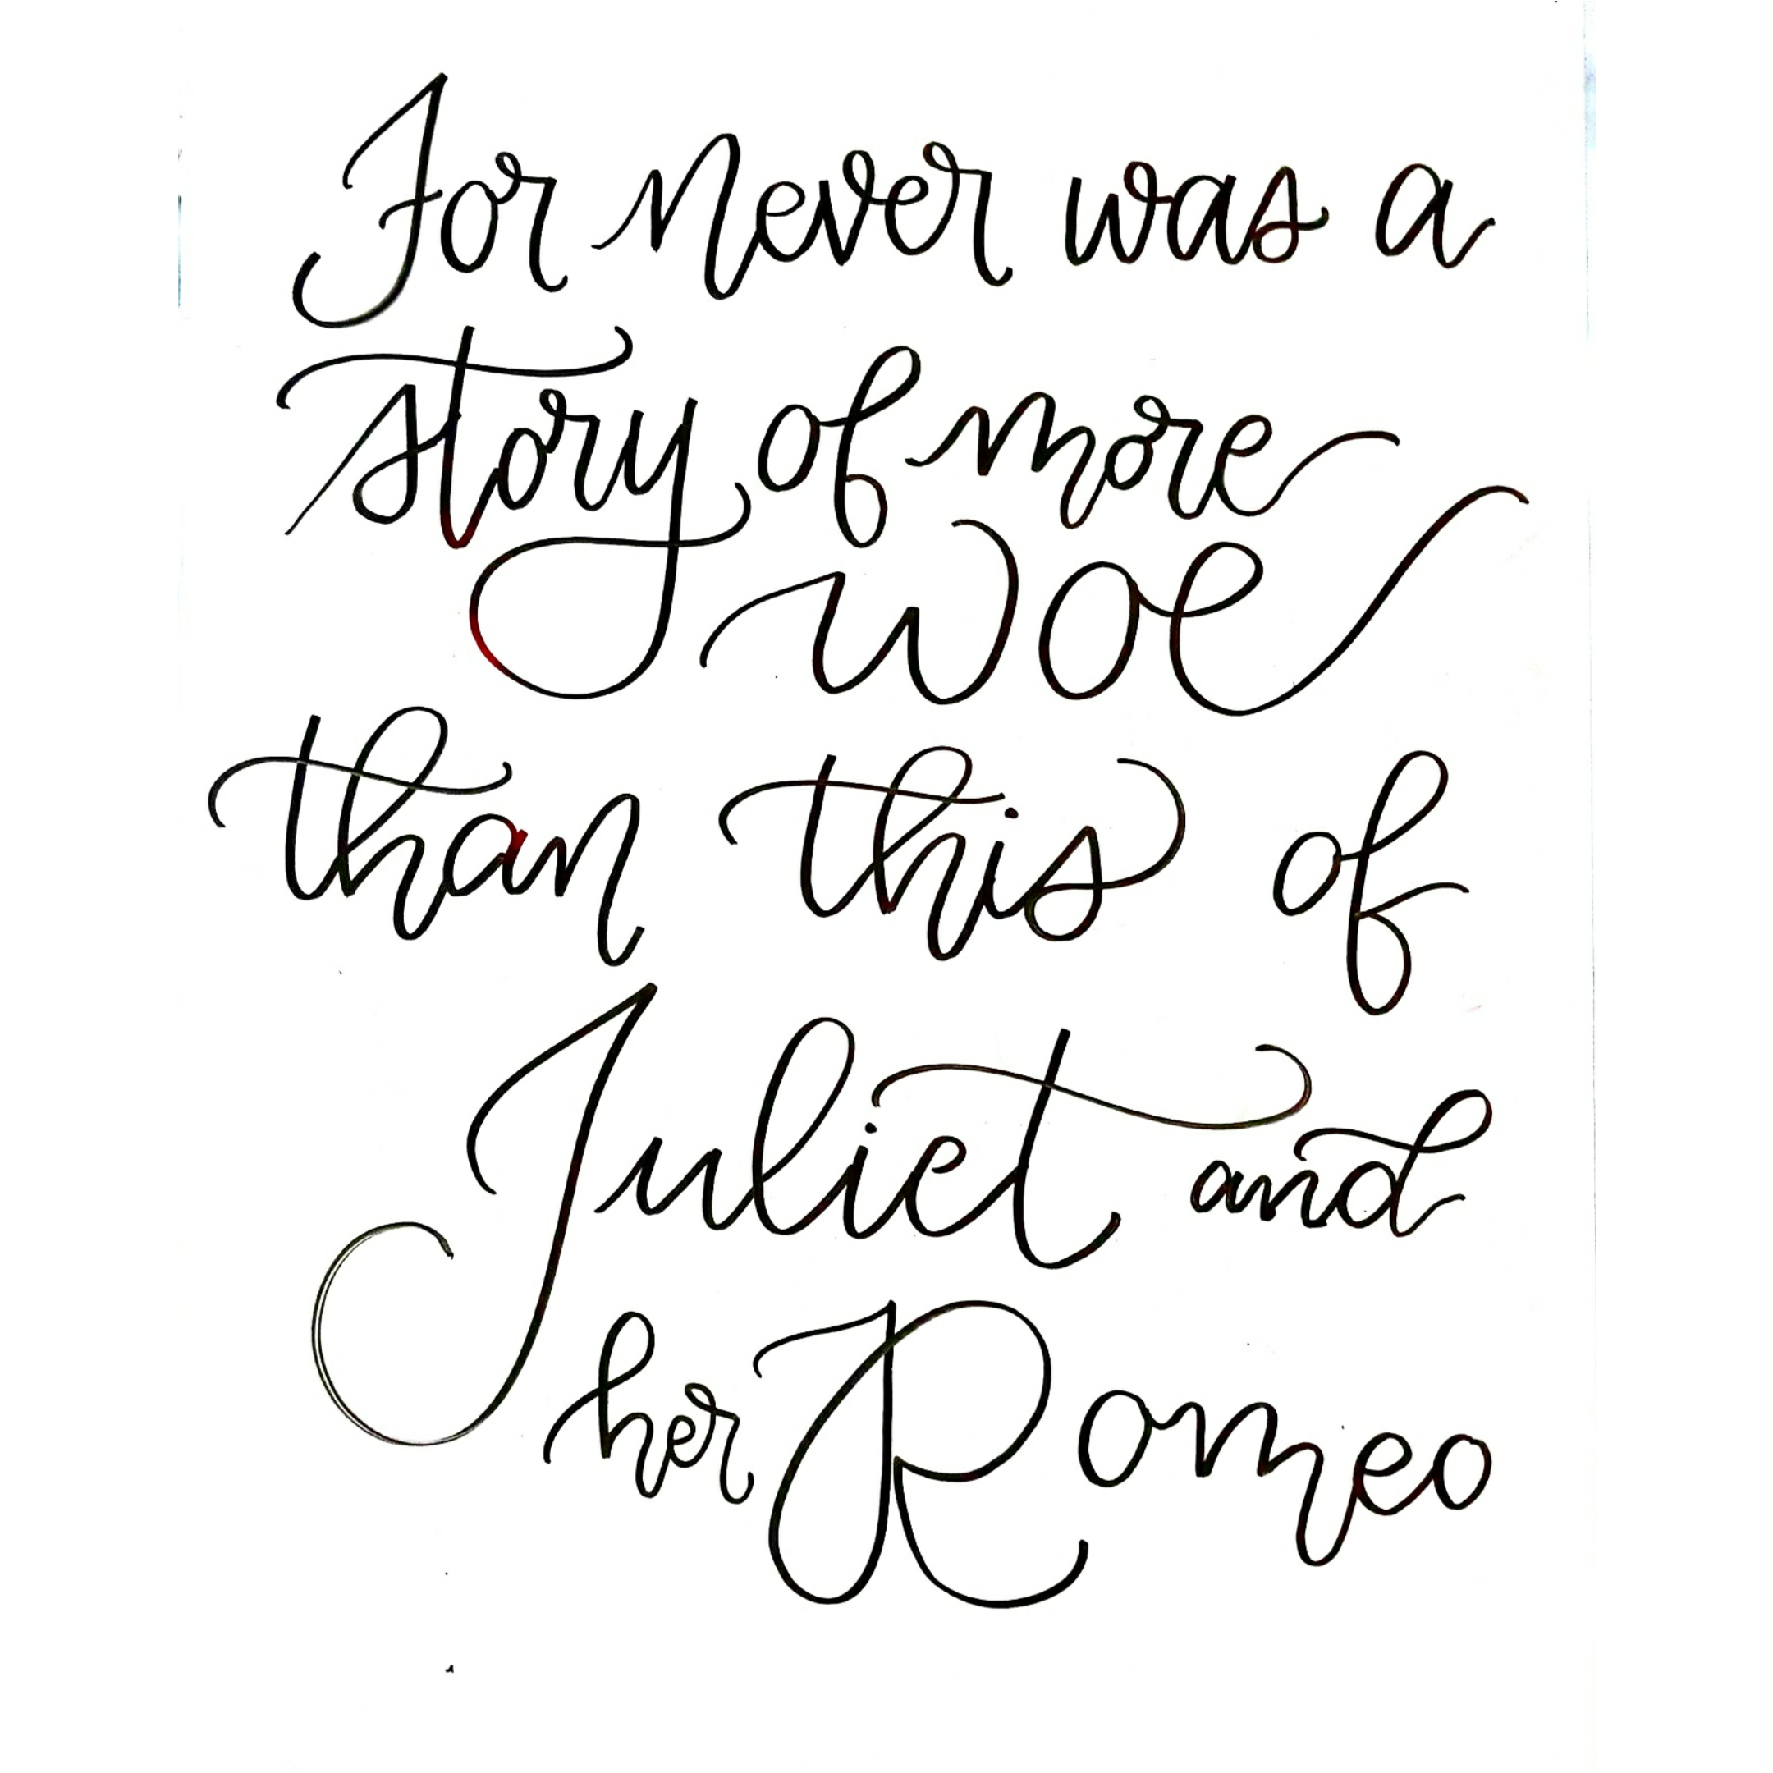 For never was a
story of more
woe
than this of
Juliet and
her Romeo